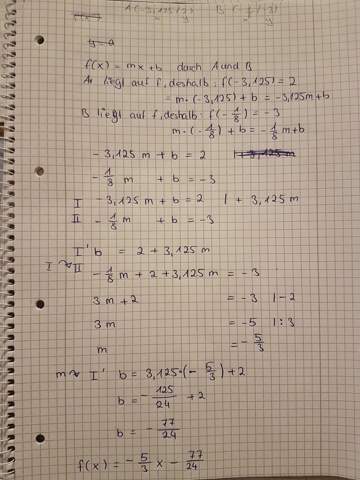 A(-3,125/2) B(-1/8/-3)
x y x y
f(x) = mx + b durch A und B
A liegt auf f, deshalb: f(-3,125) = 2
= m·(-3,125) + b = -3,125m + b
B liegt auf f, deshalb: f(-1/8) = -3
m·(-1/8) + b = -1/8 m + b
-3,125 m + b = 2 | + 3,125 m
-1/8 m + b = -3
I -3,125 m + b = 2 | + 3,125 m
II -1/8 m + b = -3
I' b = 2 + 3,125 m
I ↷ II -1/8 m + 2 + 3,125 m = -3
3 m + 2 = -3 | -2
3 m = -5 | :3
m = -5/3
m ↷ I' b = 3,125·(-5/3) + 2
b = -125/24 + 2
b = -77/24
f(x) = -5/3 x - 77/24